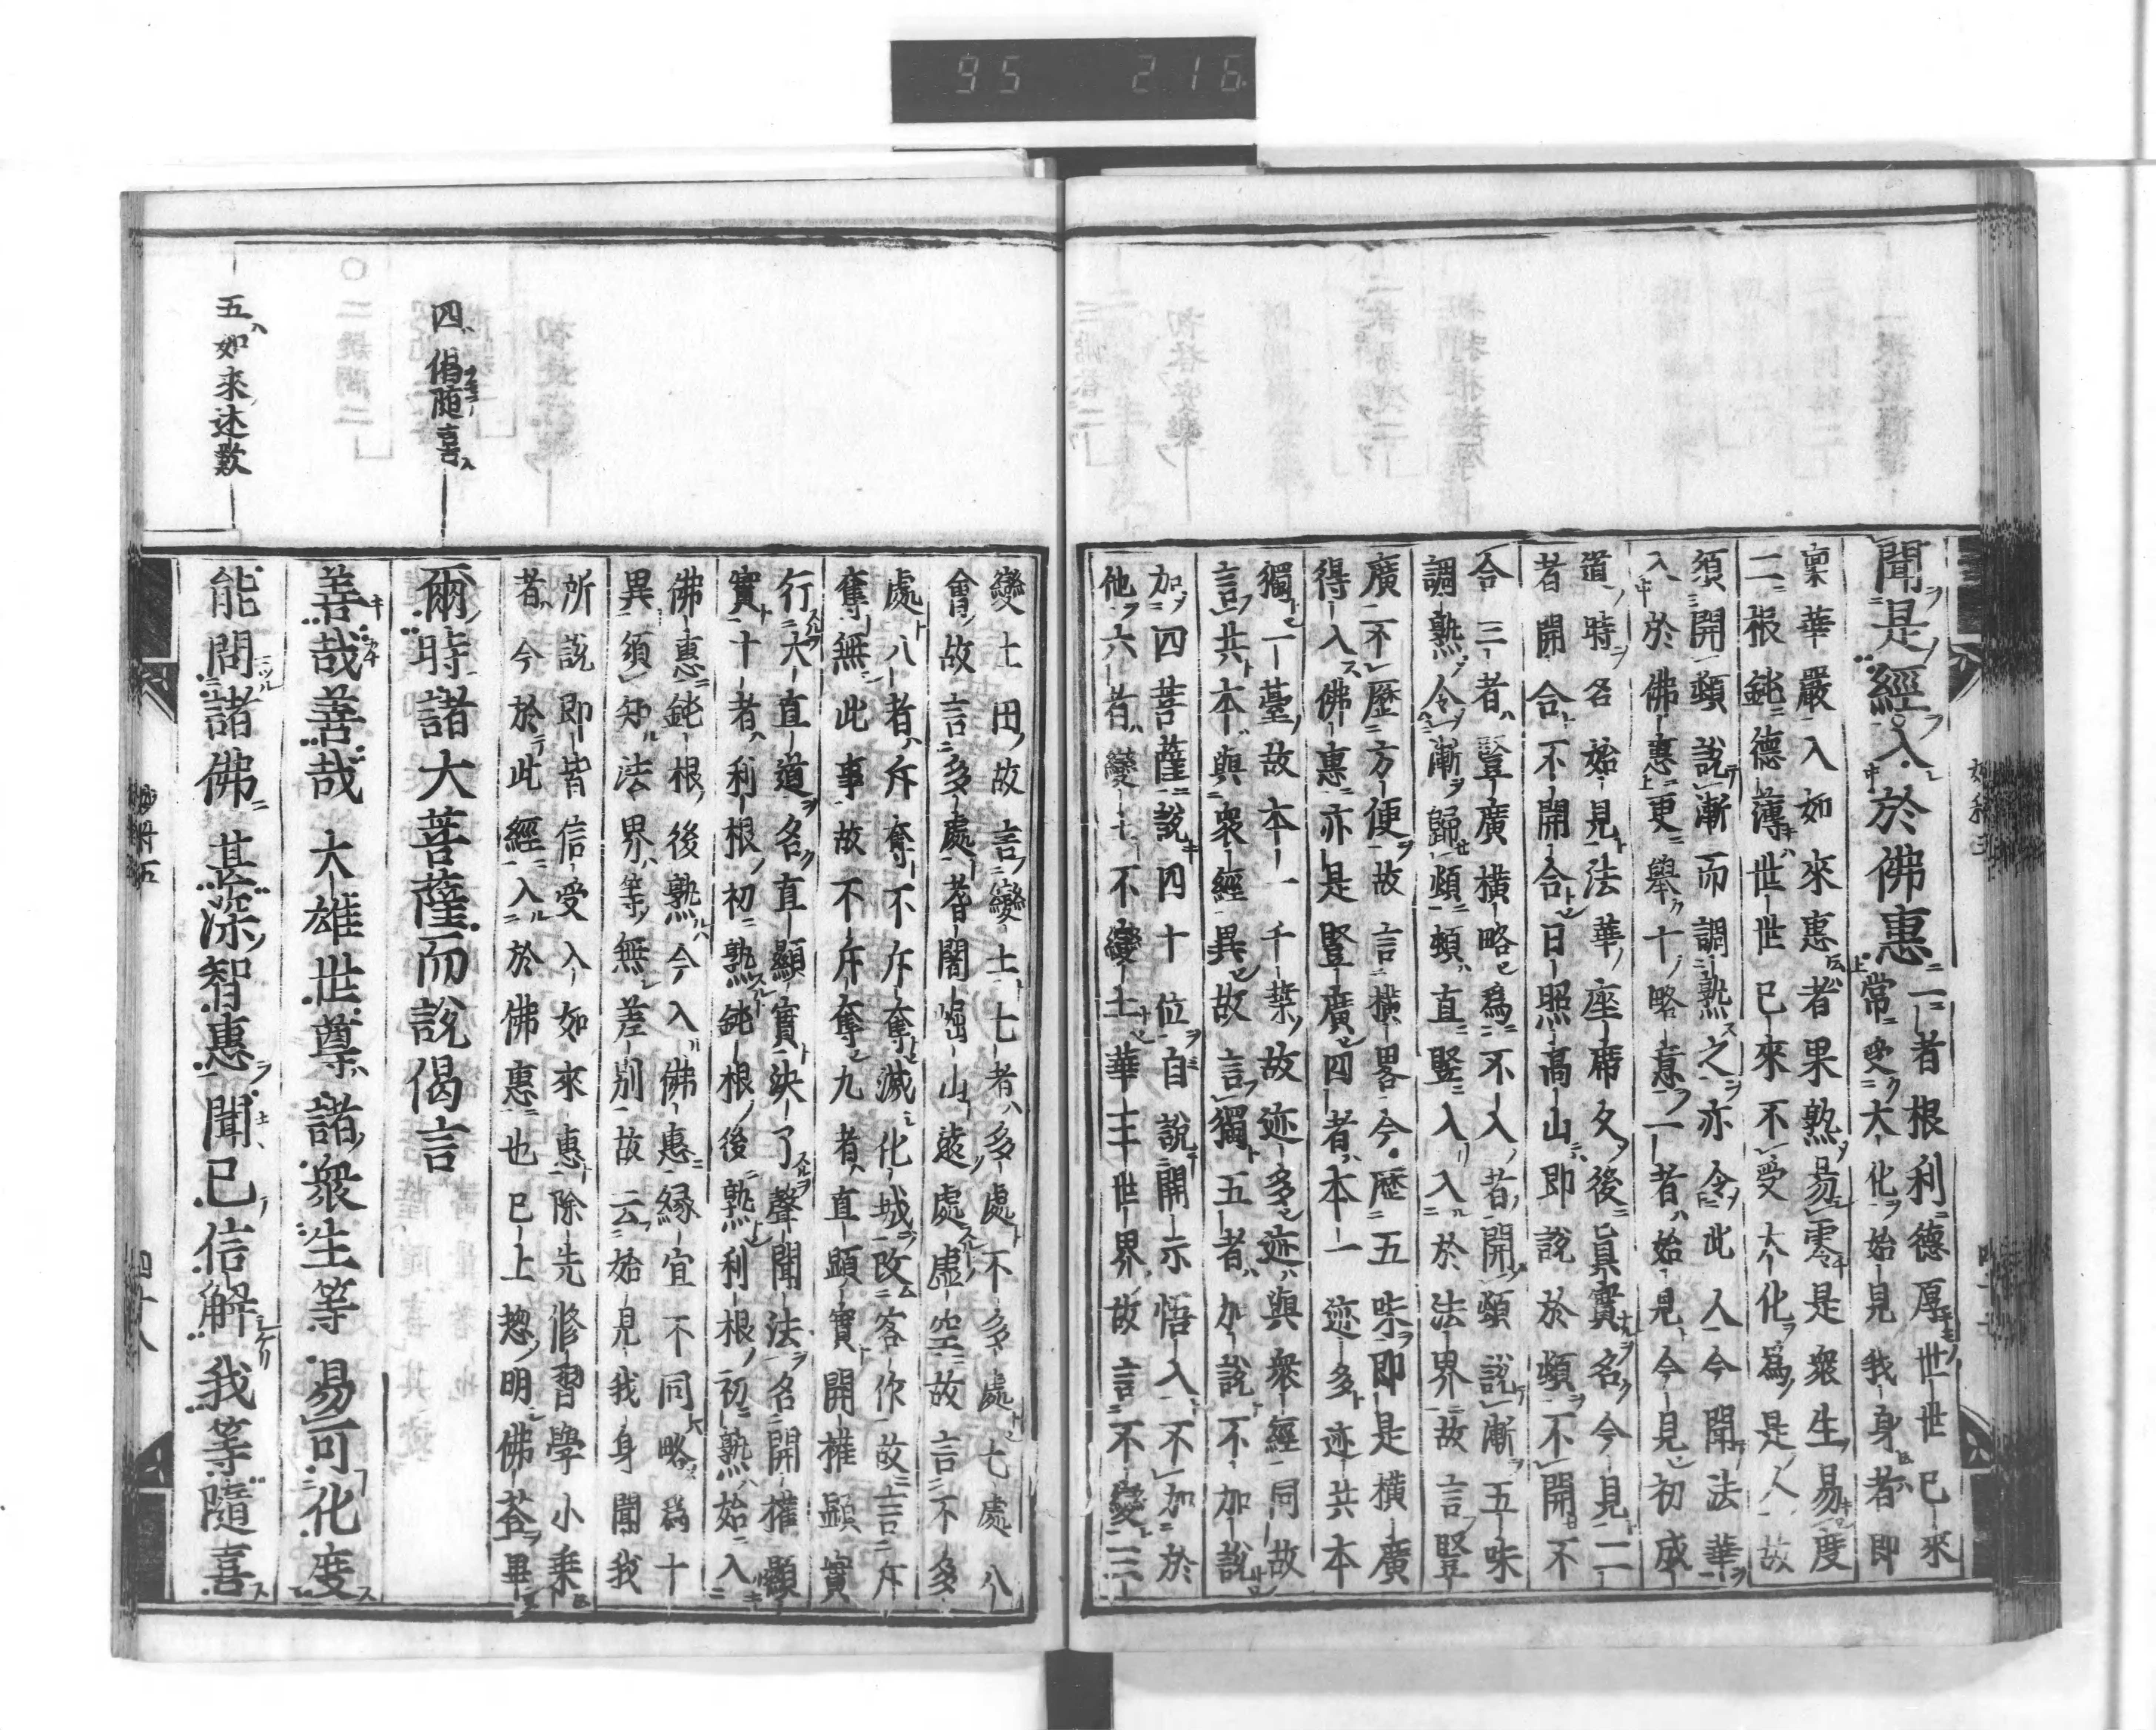 95 216
聞是經入於佛惠
一者根利德厚世世已來
常受大化始見我身者即
稟華嚴入如來惠者果熟易零是衆生易度
二根鈍德薄世世已來不受大化爲是人故
須開頓說漸而調熟之亦令此人今聞法華
入於佛惠更舉十略意一者始見今見初成
道時名始見法華座席久後眞實名今見二
者開合不開合日照高山即說於頓不開不
合三者豎廣橫略爲不入者開頓說漸五味
調熟令漸歸頓頓直豎入入於法界故言豎
廣二不歷方便故言橫畧今歷五味即是橫廣
得入佛惠亦是豎廣四者本一迹多迹共本
獨一臺故本一千葉故迹多迹與衆經同故
言共本與衆經異故言獨五者加說不加說
加四菩薩說四十位自說開示悟入不加於
他六者變土不變土華王世界故言不變三
變土田故言變土七者多處不多處七處八
會故言多處耆闍崛山遠處虛空故言不多
處八者斥奪不斥奪滅化城改客作故言斥
奪無此事故不斥奪九者直顯實開權顯實
行大直道名直顯實決了聲聞法名開權顯
實十者利根初熟鈍根後熟利根初熟始入
佛惠鈍根後熟今入佛惠緣宜不同略爲十
異須知法界等無差別故云始見我身聞我
所說即皆信受入如來惠除先修習學小乘
者今於此經入於佛惠也已上惣明佛荅畢
四偈隨喜
爾時諸大菩薩而說偈言
善哉善哉 大雄世尊 諸衆生等 易可化度
五如來述歎
能問諸佛 甚深智惠 聞已信解 我等隨喜
四十八